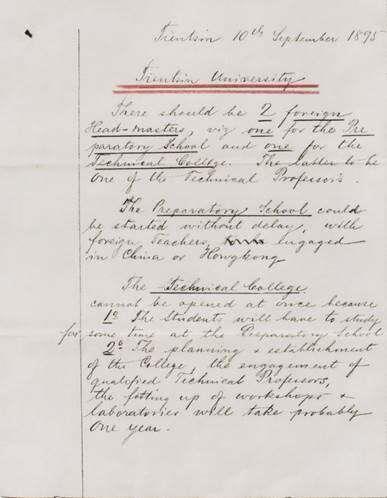 Tientsin 10th September 1895
Tientsin University
There should be 2 foreign
Head-masters, viz one for the Pre
paratory School and one for the
Technical College. The latter to be
one of the Technical Professors.
The Preparatory School could
be started without delay, with
foreign Teachers engaged
in China or Hongkong
The Technical College
cannot be opened at once because
1o The Students will have to study
for some time at the Preparatory School
2o The planning & establishment
of the College, the engagement of
qualified Technical Professors,
the fitting up of workshops &
laboratories will take probably
one year.